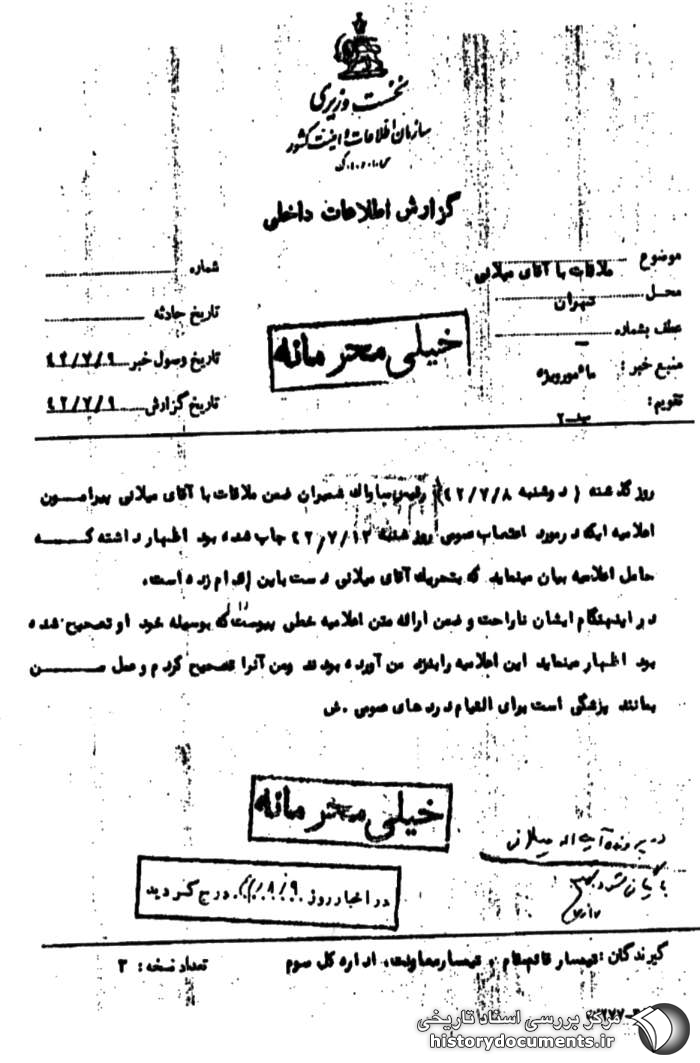 نخست وزیری
سازمان اطلاعات و امنیت کشور
گزارش اطلاعات داخلی
موضوع ملاقات با آقای میلانی
محل تهران
عطف بشماره
منبع خبر : مأمور ویژه
تقویم : ب-۲
شماره
تاریخ حادثه
تاریخ وصول خبر ۴۲/۷/۹
تاریخ گزارش ۴۲/۷/۹
خیلی محرمانه
روز گذشته ( دوشنبه ۴۲/۷/۸) رئیس ساواک شمیران ضمن ملاقات با آقای میلانی پیرامون
اعلامیه ایکه در مورد اعتصاب عمومی روز شنبه ۴۲/۷/۱۳ چاپ شده بود اظهار داشته که
حامل اعلامیه بیان مینماید که بتحریک آقای میلانی دست باین اقدام زده است.
در اینهنگام ایشان ناراحت و ضمن ارائه متن اعلامیه خطی پیوست که بوسیله خود او تصحیح شده
بود اظهار مینماید این اعلامیه را بنزد من آورده بودند ومن آنرا تصحیح کردم و عمل من
بمانند پزشکی است برای التیام دردهای عمومی .ش
خیلی محرمانه
در پرونده آیت اله میلانی
بایگانی شود
در اخبار روز ۸/۹ درج گردید
گیرندگان : تیمسار قائم مقام ، تیمسار معاونت، اداره کل سوم
تعداد نسخه : ۳
مرکز بررسی اسناد تاریخی
historydocuments.ir